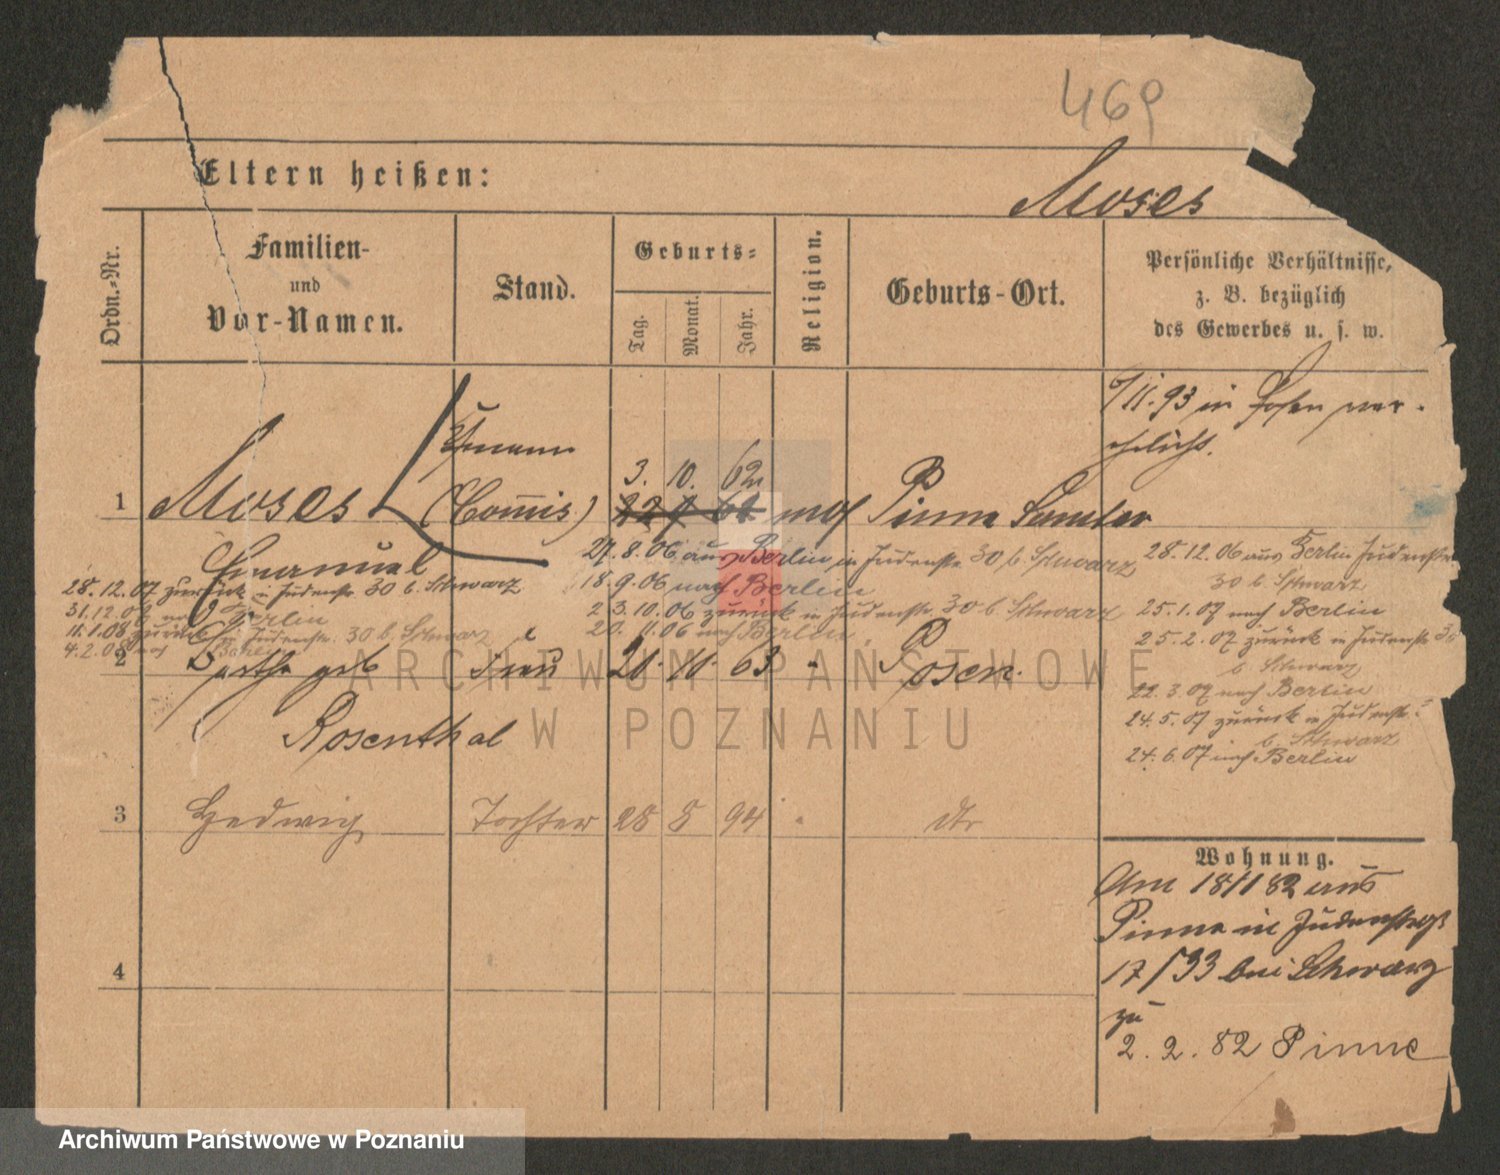 469
Eltern heißen:
Moses
Ordn.-Nr.
Familien-
und
Vor-Namen.
Stand.
Geburts-
Tag.
Monat.
Jahr.
Religion.
Geburts-Ort.
Persönliche Verhältnisse,
z. B. bezüglich
des Gewerbes u. s. w.
11.93 in Posen ver-
ehelicht.
1
Moses
Emanuel
(Commis)
3. 10. 62
mos
Pinne Samter
27.8.06 aus Berlin in Judenstr. 30 b. Schwarz
18.9.06 nach Berlin
3.10.06 zurück in Judenstr. 30 b. Schwarz
20.11.06 nach Berlin
28.12.07 zurück in Judenstr. 30 b. Schwarz
Berlin
11.1.08 zurück in Judenstr. 30 b. Schwarz
4.2.08 nach Berlin
28.12.06 aus Berlin Judenstr.
30 b. Schwarz
25.1.07 nach Berlin
25.2.07 zurück in Judenstr. 30
b. Schwarz
22.3.07 nach Berlin
24.5.07 zurück in Judenstr.
b. Schwarz
24.6.07 nach Berlin
2
geb
Rosenthal
Frau
63
Posen.
3
Hedwig
Tochter
28 8 94
dto
4
Wohnung.
Am 18/1 82 aus
Pinne in Judenstr.
17/33 bei Schwarz
zu
2. 2. 82 Pinne
ARCHIWUM PAŃSTWOWE
W POZNANIU
Archiwum Państwowe w Poznaniu